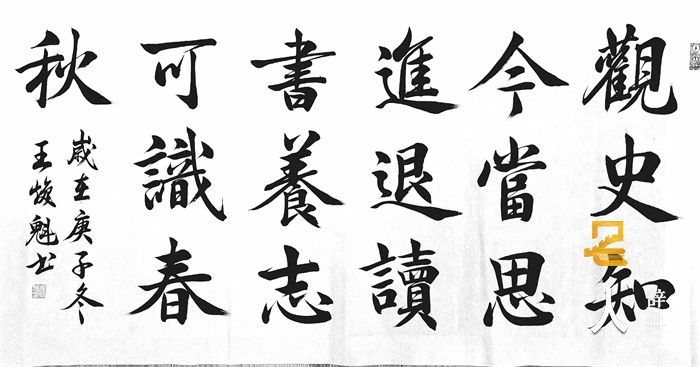 觀史知
今當思
進退讀
書養志
可識春
秋
歲在庚子冬
王焌魁书